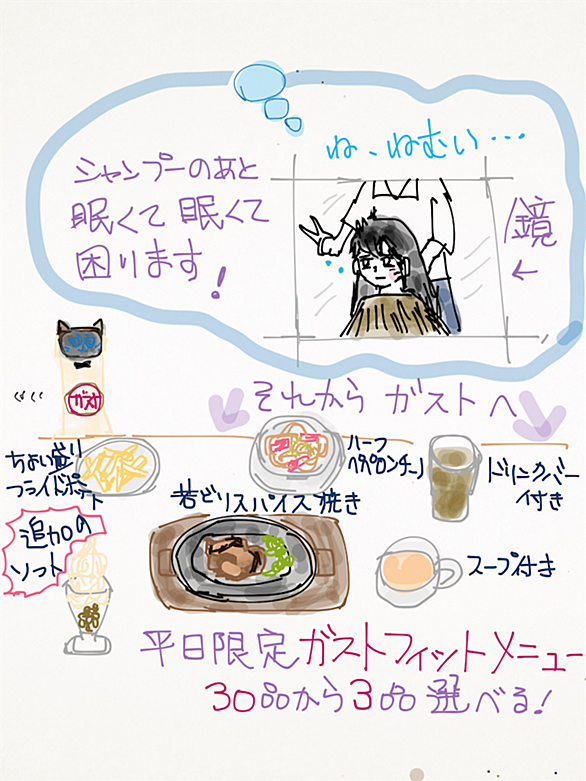 ね、ねむい・・・
シャンプーのあと
眠くて眠くて
困ります!
鏡
←
それから ガストへ
ガスト
ちょい盛り
フライドポテト
ハーフ
ペペロンチーノ
ドリンクバー
付き
若どりスパイス焼き
追加の
ソフト
スープ付き
平日限定ガストフィットメニュー
30品から3品選べる!